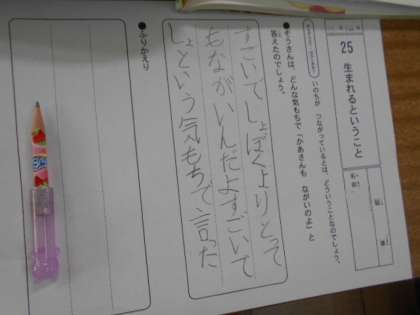 25 生まれるということ
いのちが つながっているとは、どういうことなのでしょう。
●ぞうさんは、どんな気もちで「かあさんも ながいのよ」と
答えたのでしょう。
すごいでしょぼくよりとって
もながいんだよすごいで
しょという気もちで言った
●ふりかえり